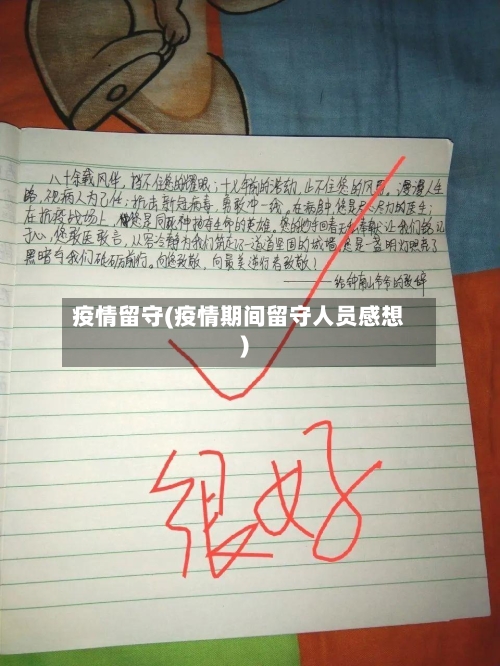 八十余载风华,挡不住您的耀眼;十七年前的活动,止不住您的风。漫漫人生
路,视病人为己任;抗击新冠病毒,勇敢冲一线。在病房中您是尽力的医生;
在抗疫战场上,您是同死神抢夺生命的英雄。您的让我们铭记
于心,您敢医敢言,从容冷静为我们筑起了一道道坚固的城墙,您是一盏明灯照亮了
黑暗与我们砥砺前行。向您致敬,向最美逆行者致敬!
——给钟南山爷爷的致辞
疫情留守(疫情期间留守人员感想
)
很好